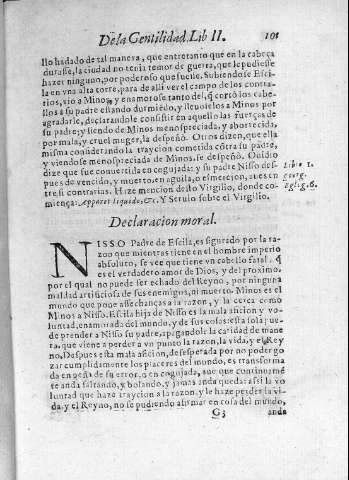 De la Gentilidad. Lib II. 101
llo hadado de tal maneva, que entretanto que en la cabeça
durasse, la ciudad no tenia temor de guerra, que le pudiesse
hazer ninguno, por poderoso que fuesse. Subiendose Esci-
la en vna alta torre, para de alli ver el campo de los contra-
rios, vio a Minos, y enamorose tanto del, q̃ cortò los cabe-
llos a su padre estando durmiẽdo, y lleuòselos a Minos por
agradarle, declarandole consistir en aquello las fuerças de
su padre; y siendo de Minos menospreciada, y aborrecida,
por mala, y cruel muger, la despeñò. Otros dizen, que ella
misma considerando la traycion cometida cõtra su padre,
y viendose menospreciada de Minos, se despeñò. Ouidio
dize que fue conuertida en cogujada: y su padre Nisso des-
pues de vencido, y muerto, en aguila, o esmerejon, aues en
tre si contrarias. Haze mencion desto Virgilio, donde co-
miença: Apparet liquido, &c. Y Seruio sobre el Virgilio.
Libro 1.
georg.
Eglig. 6.
Declaracion moral.
NISSO Padre de Escilla, es figurado por la ra-
zon que mientras tiene en el hombre imperio
absoluto, se vee que tiene vn cabello fatal, q̃
es el verdadero amor de Dios, y del proximo,
por el qual no puede ser echado del Reyno, por ninguna
maldad artificiosa de sus enemigos, ni muerto. Minos es el
mundo que pone assechanças a la razon, y la cerca como
Minos a Nisso. Escila hija de Nisso es la mala aficion y vo-
luntad, enamorada del mundo, y de sus cosas: esta sola pue-
de prender a Nisso su padre, apagandole la caridad de mane
ra, que viene a perder a vn punto la razon, la vida, y el Rey
no. Despues esta mala aficion, desesperada por no poder go
zar cumplidamente los plazeres del mundo, es transforma
da en pena de su error, o en cogujada, aue que continuamẽ
te anda saltando, y bolando, y jamas anda queda: assi la vo
luntad que haze traycion a la razon, y le haze perder la vi-
da, y el Reyno, no se pudiendo afirmar en cosa del mundo,
G3 anda